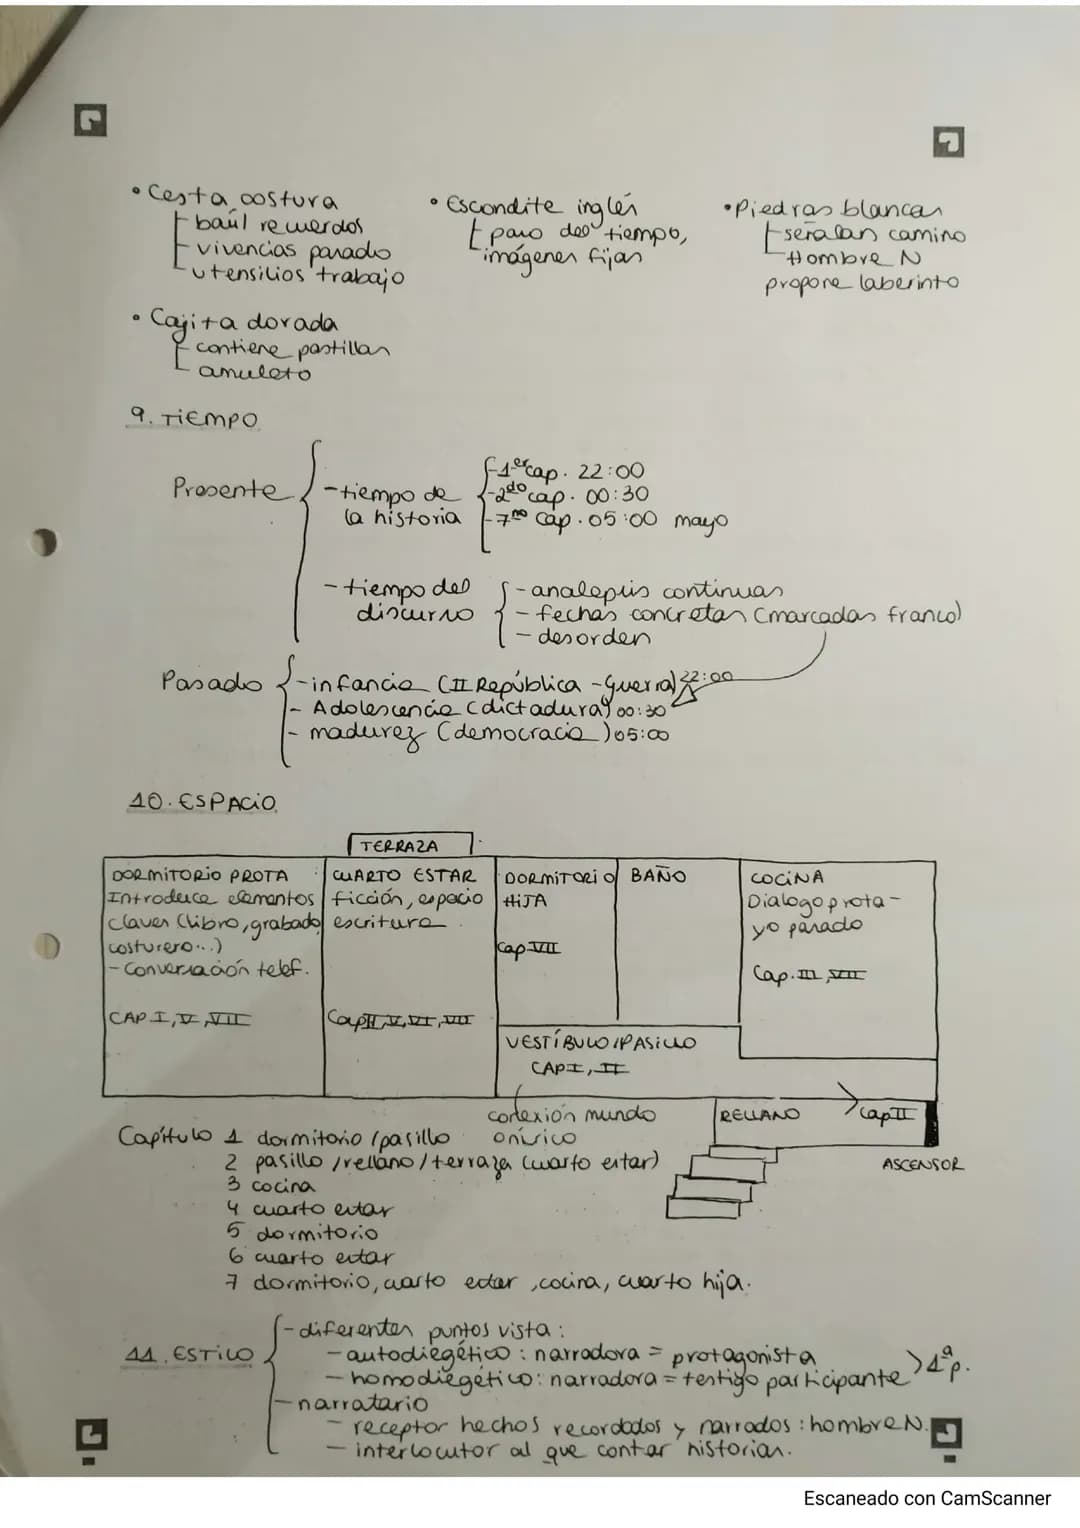 • Cesta costura
baúl recuerdos
vivencias pasado
utensilios trabajo
• Escondite inglés
paso del tiempo,
imágenes fijas
• Piedras blancas
señalan camino
Hombre N
propone laberinto
• Cajita dorada
contiene pastillas
amuleto
9. TIEMPO
Presente
- tiempo de
la historia
- 1er cap. 22:00
- 2do cap. 00:30
- 7mo cap. 05:00 mayo
- tiempo del
discurso
- analepsis continuas
- fechas concretas (marcadas franco)
- desorden
Pasado
- infancia (II República - Guerra) 22:00
- Adolescencia (dictadura) 00:30
- madurez (democracia) 05:00
10. ESPACIO
TERRAZA
DORMITORIO PROTA
Introduce elementos
claves (libro, grabado
costurero...)
- Conversación telef.
CAP I, V, VII
CUARTO ESTAR
ficción, espacio
escritura
Cap II, V, VI, VII
DORMITORIO
HIJA
Cap VII
BAÑO
COCINA
Dialogo prota -
yo pasado
Cap. III, VII
VESTÍBULO/PASILLO
CAP I, II
conexión mundo
onírico
RELLANO
Cap II
ASCENSOR
Capítulo 1 dormitorio/pasillo
2 pasillo/rellano/terraza (cuarto estar)
3 cocina
4 cuarto estar
5 dormitorio
6 cuarto estar
7 dormitorio, cuarto estar, cocina, cuarto hija.
11. ESTILO
- diferentes puntos vista:
- autodiegético: narradora = protagonista
- homodiegético: narradora = testigo participante
>1ª p.
- narratario
- receptor hechos recordados y narrados: hombre N.
- interlocutor al que contar historias.
Escaneado con CamScanner